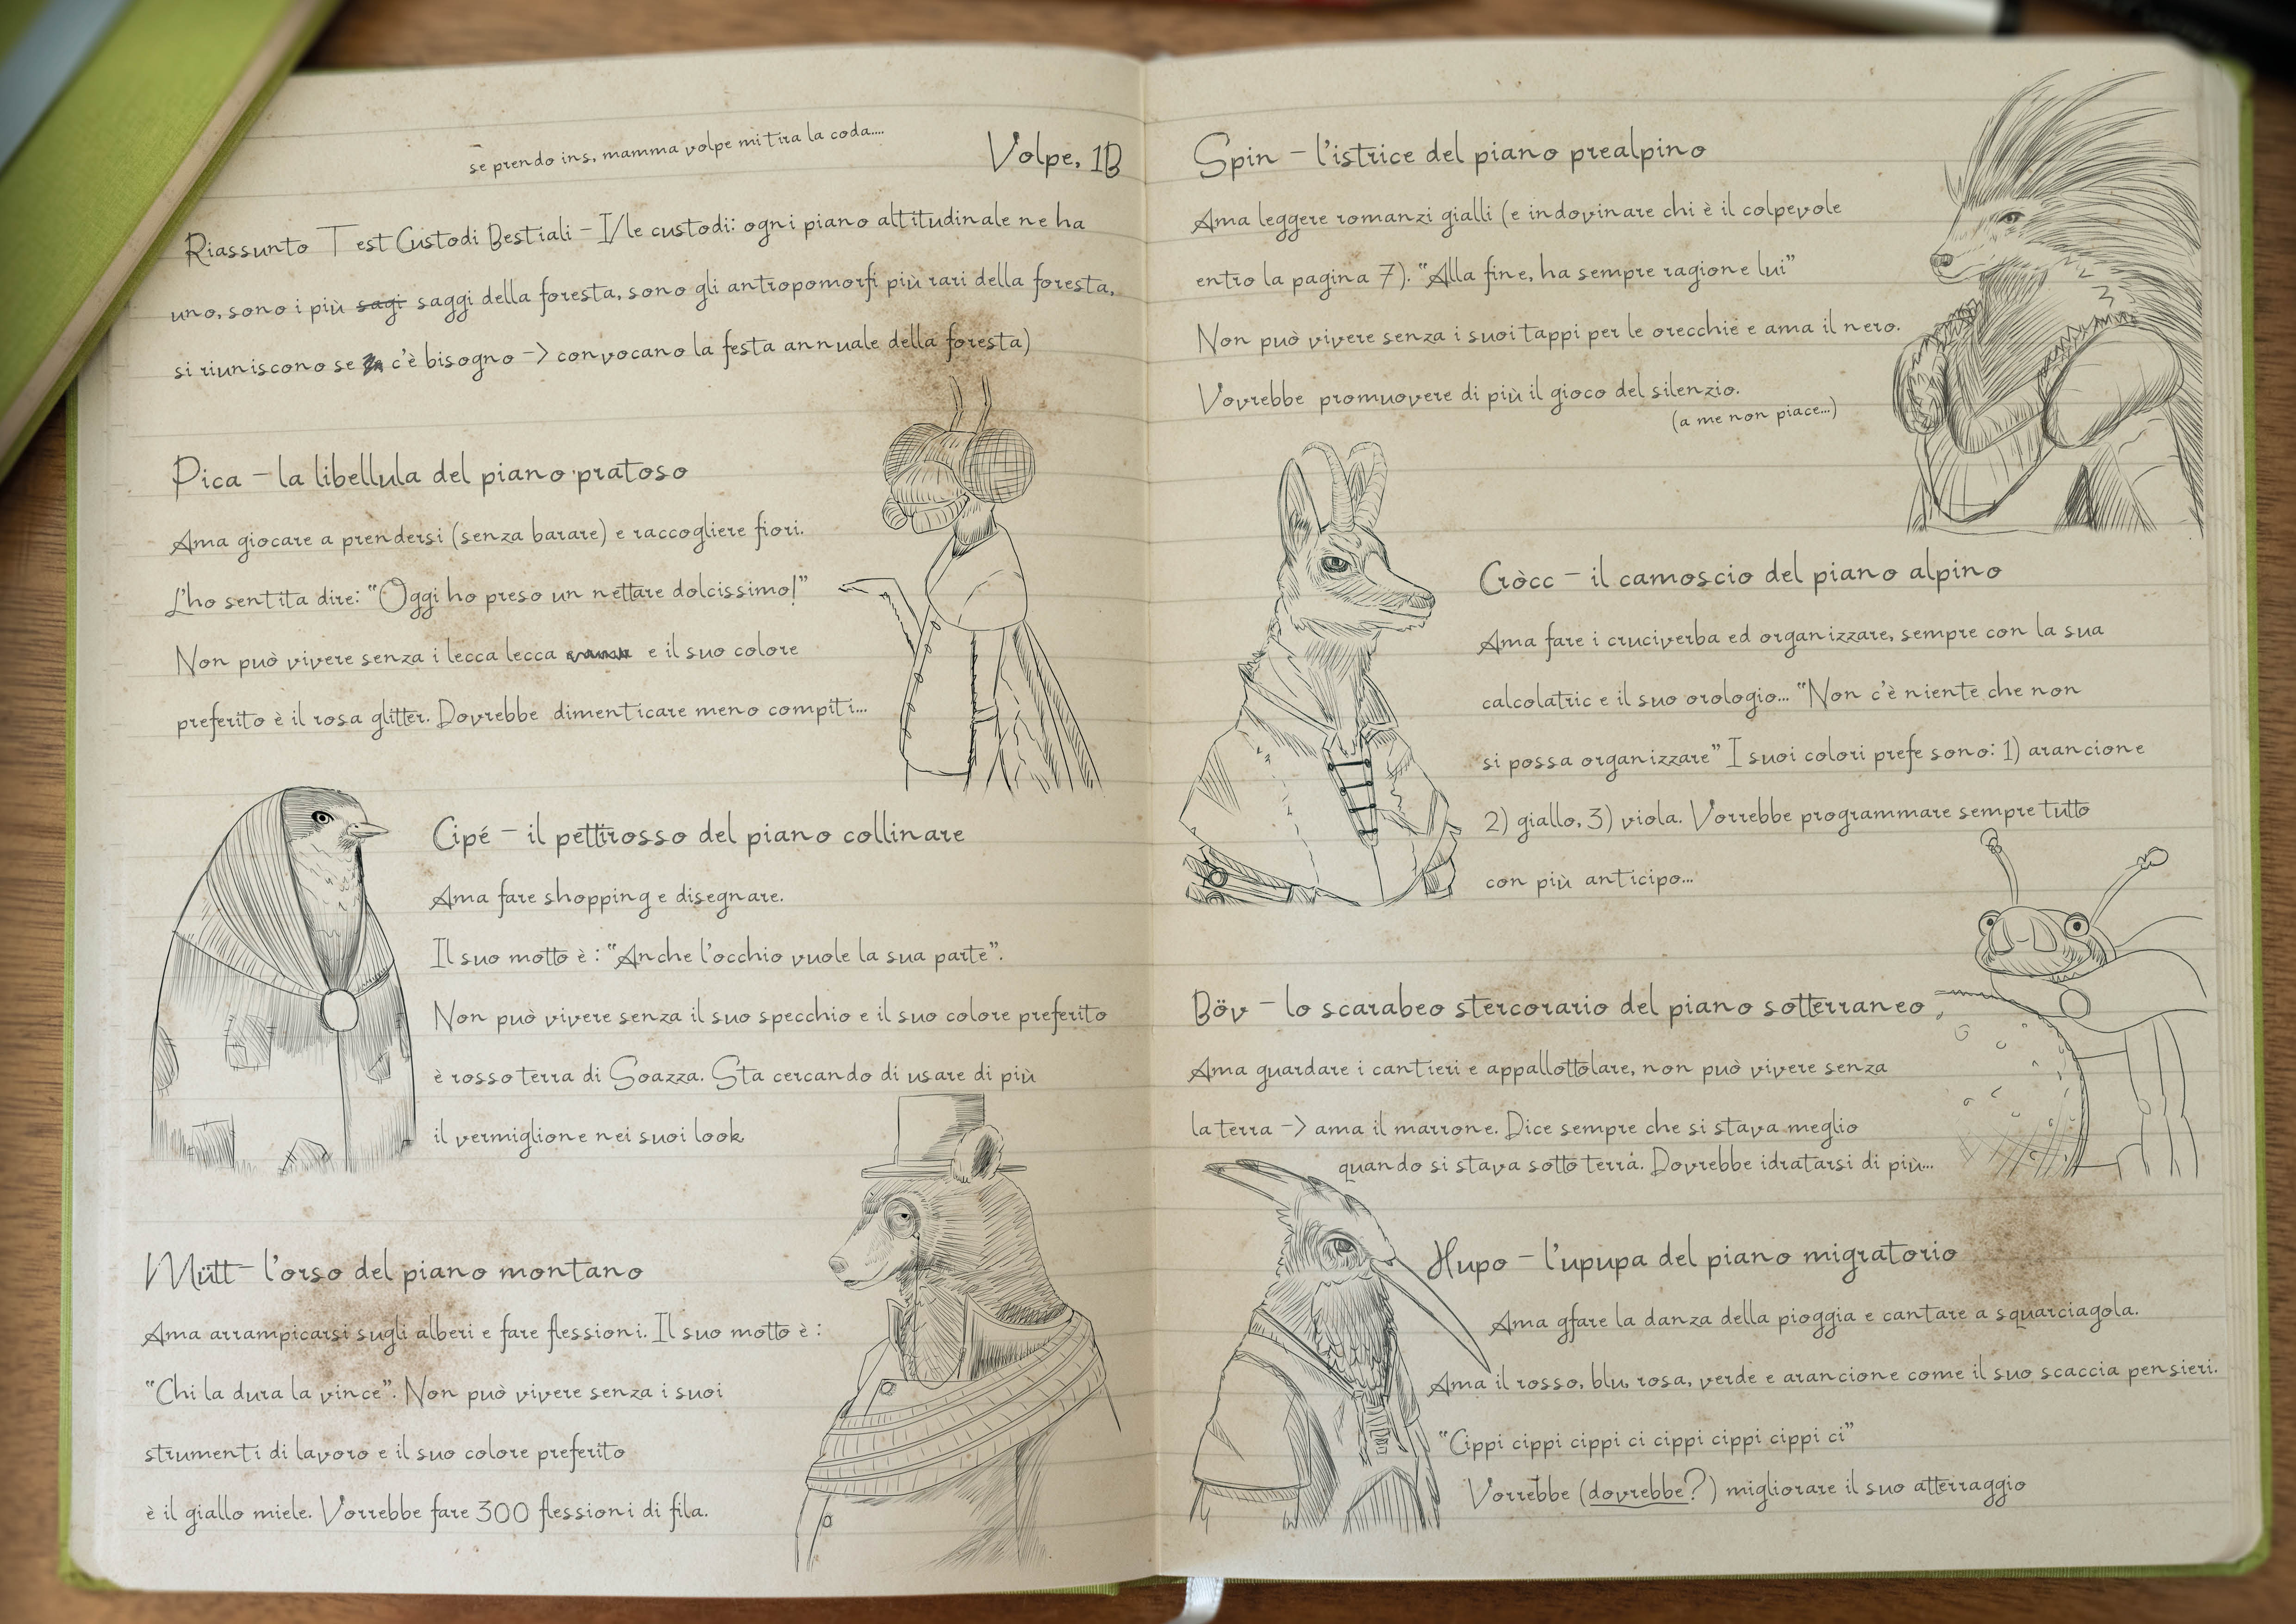 se prendo ins, mamma volpe mi tira la coda....
Volpe, 1B
Riassunto Test Custodi Bestiali – I/le custodi: ogni piano altitudinale ne ha
uno, sono i più sagi saggi della foresta, sono gli antropomorfi più rari della foresta,
si riuniscono se c'è bisogno -> convocano la festa annuale della foresta)
Pica – la libellula del piano pratoso
Ama giocare a prendersi (senza barare) e raccogliere fiori.
L'ho sentita dire: "Oggi ho preso un nettare dolcissimo!"
Non può vivere senza i lecca lecca e il suo colore
preferito è il rosa glitter. Dovrebbe dimenticare meno compiti...
Cipé – il pettirosso del piano collinare
Ama fare shopping e disegnare.
Il suo motto è : "Anche l'occhio vuole la sua parte".
Non può vivere senza il suo specchio e il suo colore preferito
è rosso terra di Soazza. Sta cercando di usare di più
il vermiglione nei suoi look
Mütt – l'orso del piano montano
Ama arrampicarsi sugli alberi e fare flessioni. Il suo motto è :
"Chi la dura la vince". Non può vivere senza i suoi
strumenti di lavoro e il suo colore preferito
è il giallo miele. Vorrebbe fare 300 flessioni di fila.
Spin – l'istrice del piano prealpino
Ama leggere romanzi gialli (e indovinare chi è il colpevole
entro la pagina 7). "Alla fine, ha sempre ragione lui"
Non può vivere senza i suoi tappi per le orecchie e ama il nero.
Vovrebbe promuovere di più il gioco del silenzio.
(a me non piace...)
Cròcc – il camoscio del piano alpino
Ama fare i cruciverba ed organizzare, sempre con la sua
calcolatric e il suo orologio... "Non c'è niente che non
si possa organizzare" I suoi colori prefe sono: 1) arancione
2) giallo, 3) viola. Vorrebbe programmare sempre tutto
con più anticipo...
Böv – lo scarabeo stercorario del piano sotterraneo
Ama guardare i cantieri e appallottolare, non può vivere senza
la terra -> ama il marrone. Dice sempre che si stava meglio
quando si stava sotto terra. Dovrebbe idratarsi di più...
Hupo – l'upupa del piano migratorio
Ama gfare la danza della pioggia e cantare a squarciagola.
Ama il rosso, blu, rosa, verde e arancione come il suo scaccia pensieri.
"Cippi cippi cippi ci cippi cippi cippi ci"
Vorrebbe (dovrebbe?) migliorare il suo atterraggio